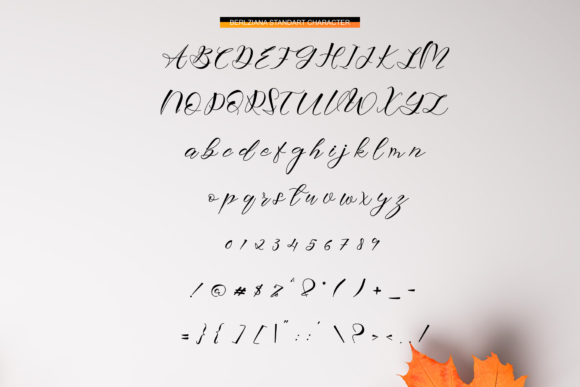 BERLZIANA STANDART CHARACTER
A B C D E F G H I J K L M
N O P Q R S T U V W X Y Z
a b c d e f g h i j k l m n
o p q r s t u v w x y z
0 1 2 3 4 5 6 7 8 9
! @ # $ % ^ & * ( ) + _ -
= } { ] [ | " : ; ' \ ? > < . , /